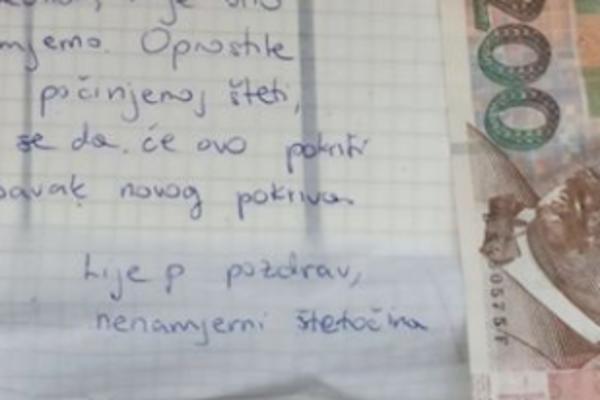 mjemo. Oprostite
počinjenoj šteti,
se da će ovo pokriti
novog pokriva
Lijep pozdrav,
nenamjerni štetočina
200